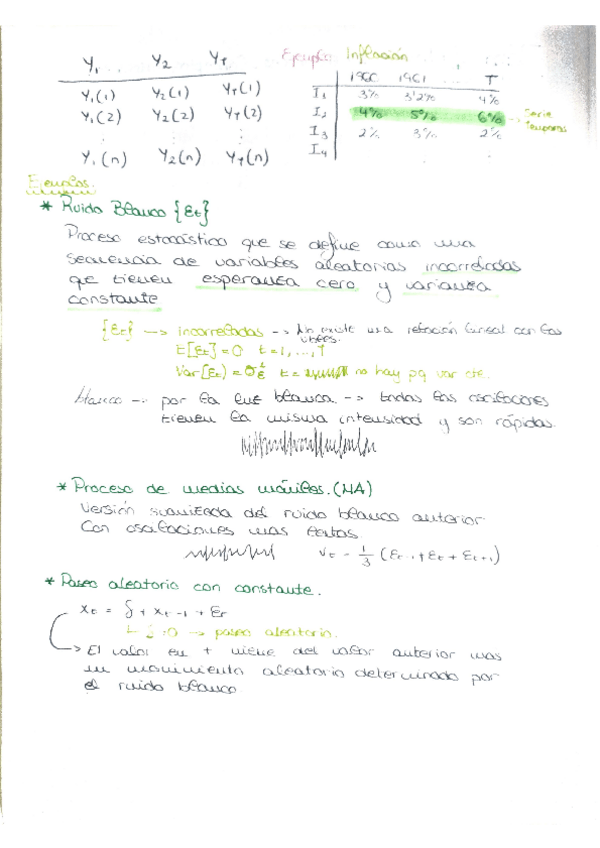 Y₁ ... Y₂ Y_T
Y₁(1) Y₂(1) Y_T(1)
Y₁(2) Y₂(2) Y_T(2)
⋮ ⋮ ⋮
Y₁(n) Y₂(n) Y_T(n)
Ejemplo: Inflación
1960 1961 ... T
I₁ 3% 3'2% 4%
I₂ 4% 5% 6% → Serie temporal
I₃ 2% 3% 2%
I₄
Ejemplos:
* Ruido Blanco {εt}
Proceso estocástico que se define como una
secuencia de variables aleatorias incorreladas
que tienen esperanza cero y varianza
constante
{εt} → incorreladas → No existe una relación lineal con las
E[εt] = 0 t = 1, ..., T
Var(εt) = σ²ε t = no hay pq var cte.
blanco → por la luz blanca → todas las oscilaciones
tienen la misma intensidad y son rápidas.
* Proceso de medias móviles. (MA)
Versión suavizada del ruido blanco anterior
Con oscilaciones más lentas.
Vt = 1/3 (εt-1 + εt + εt+1)
* Paseo aleatorio con constante.
xt = δ + xt-1 + εt
δ = 0 → paseo aleatorio.
→ El valor en t viene del valor anterior más
un movimiento aleatorio determinado por
el ruido blanco